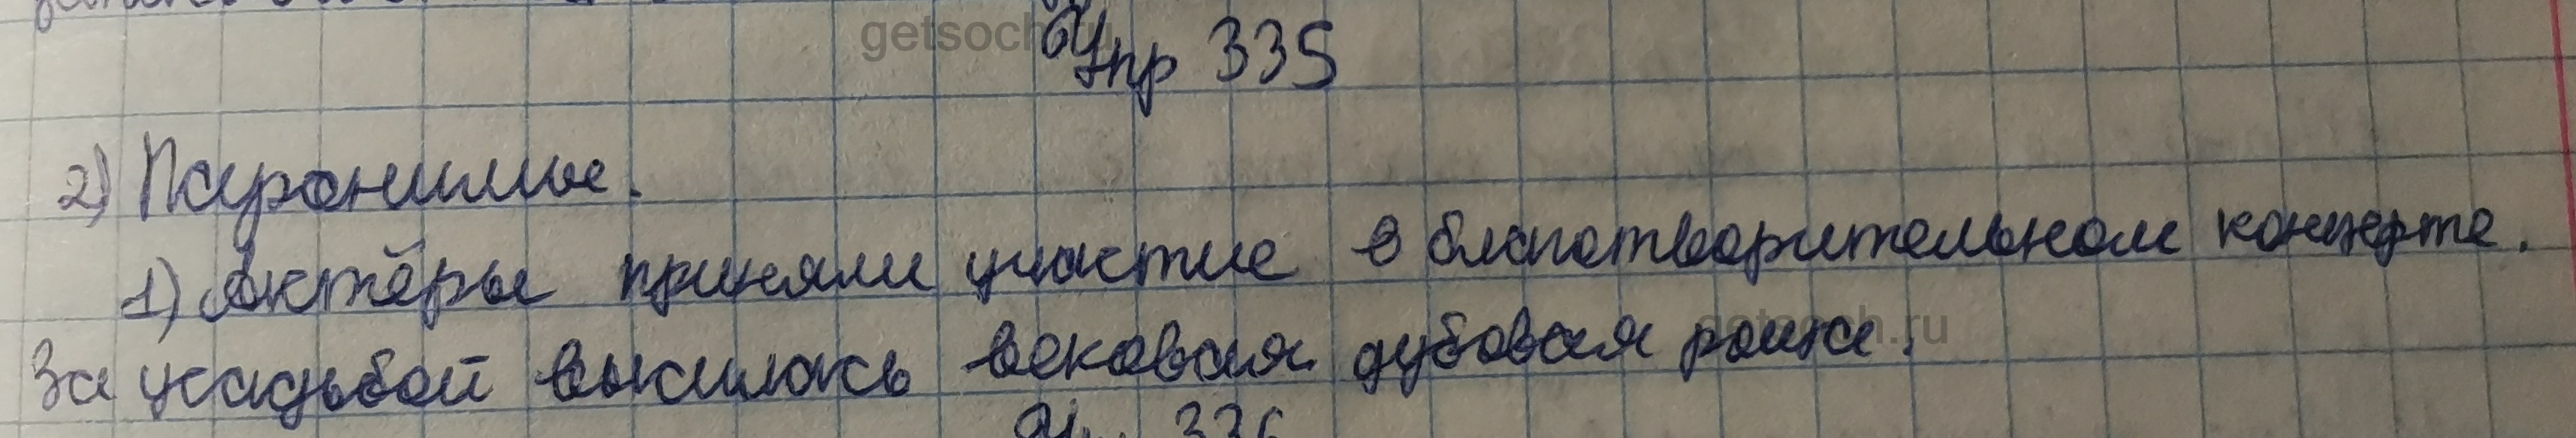 getsoch.ru
Упр 335
2) Паронимы.
1) Актёры приняли участие в благотворительном концерте.
getsoch.ru
За усадьбой высилась вековая дубовая роща.
336